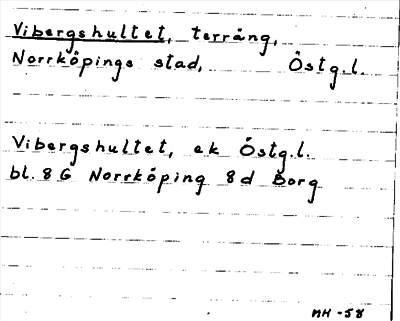 Vibergshultet, terräng,
Norrköpings stad, Östg.l.
Vibergshultet, ek Östg.l.
bl. 8 G Norrköping 8d Borg
MH -58